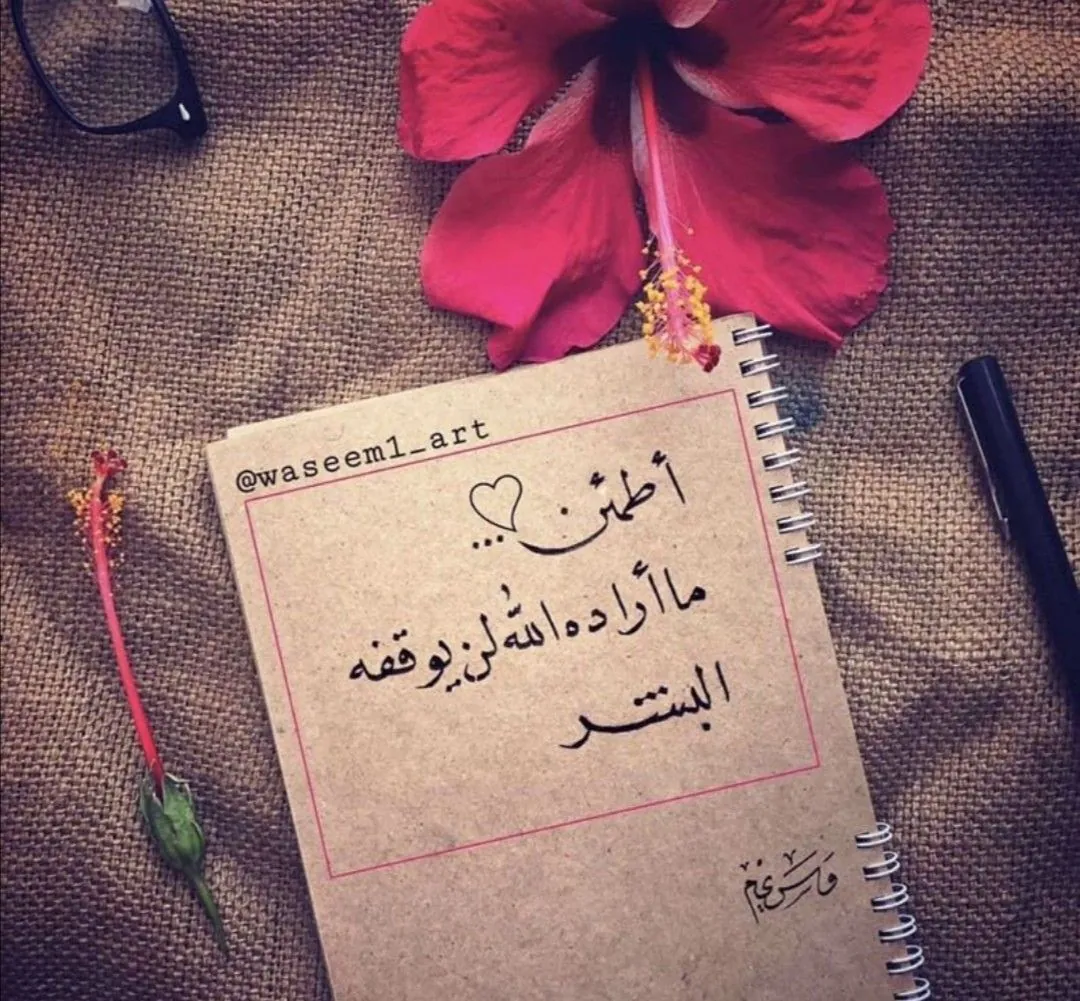 @waseem1_art
أطمئن ♡...
ما أراده الله لن يوقفه
البشر